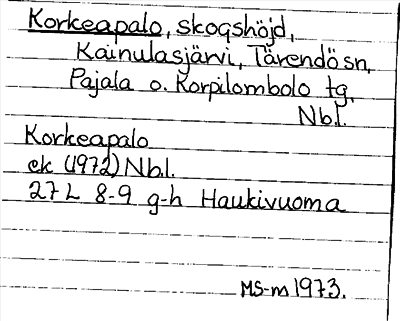 Korkeapalo, skogshöjd,
Kainulasjärvi, Tärendö sn,
Pajala o. Korpilombolo tg,
Nbl.
Korkeapalo
ek (1972) Nbl.
27 L 8-9 g-h Haukivuoma
MS-m 1973.